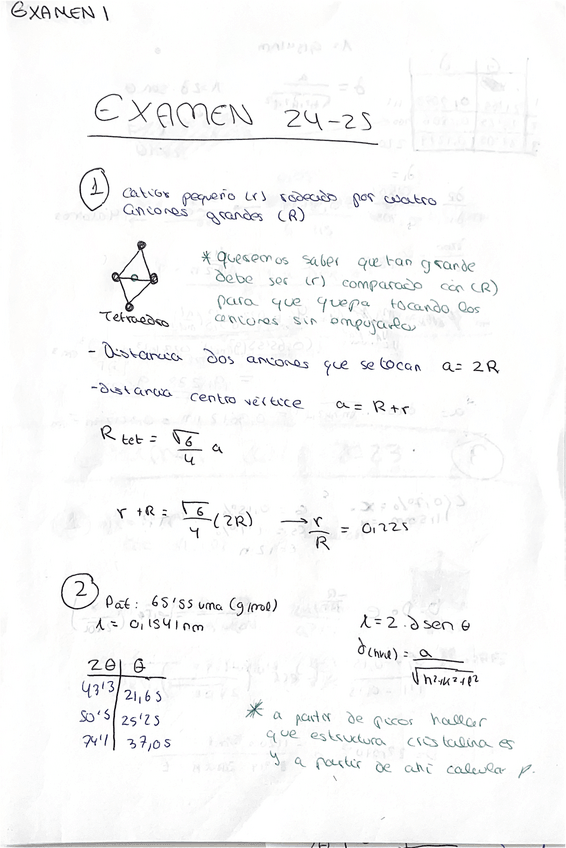 EXAMEN 1
EXAMEN 24-25
1 Catión pequeño (r) rodeado por cuatro
aniones grandes (R)
* queremos saber que tan grande
debe ser (r) comparado con (R)
para que quepa tocando los
aniones sin empujarlos
Tetraedro
- Distancia dos aniones que se tocan a = 2R
- distancia centro vértice a = R+r
R tet = √6/4 a
r + R = √6/4 (2R) → r/R = 0,225
2 Pat: 65'55 uma (g/mol)
λ = 0,1541 nm
λ = 2 · d sen θ
d(hkl) = a/√h²+k²+l²
2θ | θ
43'3 | 21,65
50'5 | 25'25
74'1 | 37,05
* a partir de picos hallar
que estructura cristalina es
y a partir de ahí calcular ρ.